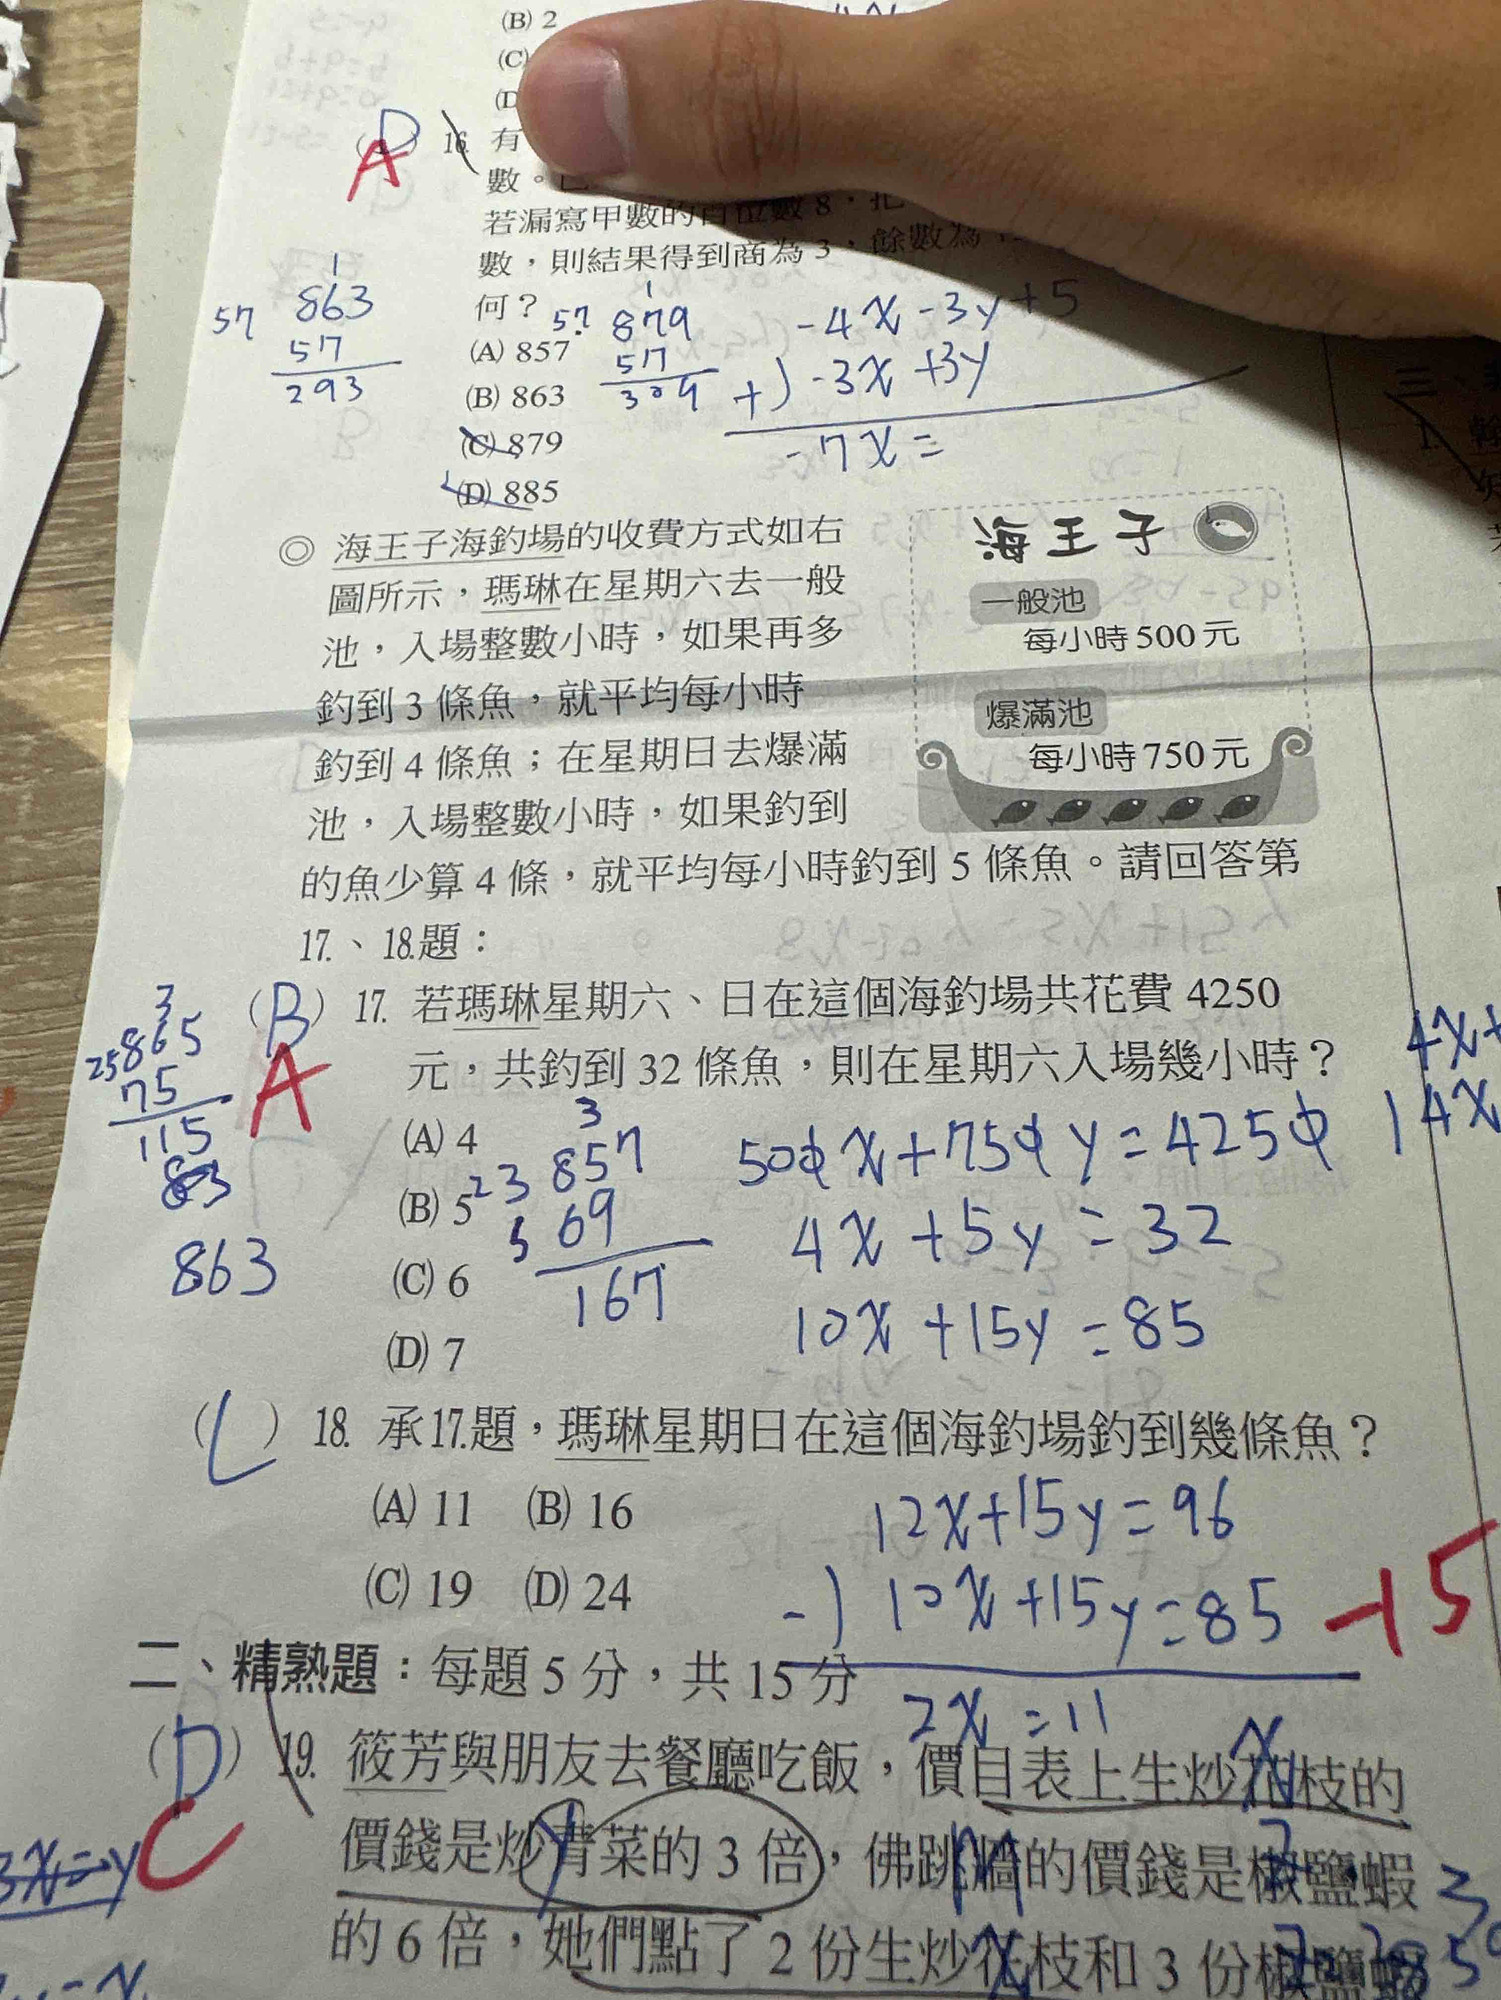 (B) 2
(C)
(D
(D) 16. 有
A
數。已
若漏寫甲數的百位數 8，把
數，則結果得到商為 3，餘數為
何？
(A) 857
(B) 863
(C) 879
(D) 885
1
57 863
57
293
1
57 879
57
309
-4x-3y+5
+) -3x+3y
-7x=
◎ 海王子海釣場的收費方式如右
圖所示，瑪琳在星期六去一般
池，入場整數小時，如果再多
釣到 3 條魚，就平均每小時
釣到 4 條魚；在星期日去爆滿
池，入場整數小時，如果釣到
的魚少算 4 條，就平均每小時釣到 5 條魚。請回答第
17.、18.題：
海王子
一般池
每小時 500 元
爆滿池
每小時 750 元
(B) 17. 若瑪琳星期六、日在這個海釣場共花費 4250
A
元，共釣到 32 條魚，則在星期六入場幾小時？
(A) 4
(B) 5
(C) 6
(D) 7
3
25 865
75
115
863
3
23 857
69
167
500x+750y=4250
4x+5y=32
10x+15y=85
4x+
14x
( ) 18. 承17.題，瑪琳星期日在這個海釣場釣到幾條魚？
(A) 11 (B) 16
(C) 19 (D) 24
12x+15y=96
-) 10x+15y=85
2x=11
-15
二、精熟題：每題 5 分，共 15 分
(D) 19. 筱芳與朋友去餐廳吃飯，價目表上生炒花枝的
C
價錢是炒青菜的 3 倍，佛跳牆的價錢是椒鹽蝦
的 6 倍，她們點了 2 份生炒花枝和 3 份椒鹽蝦
3x=y